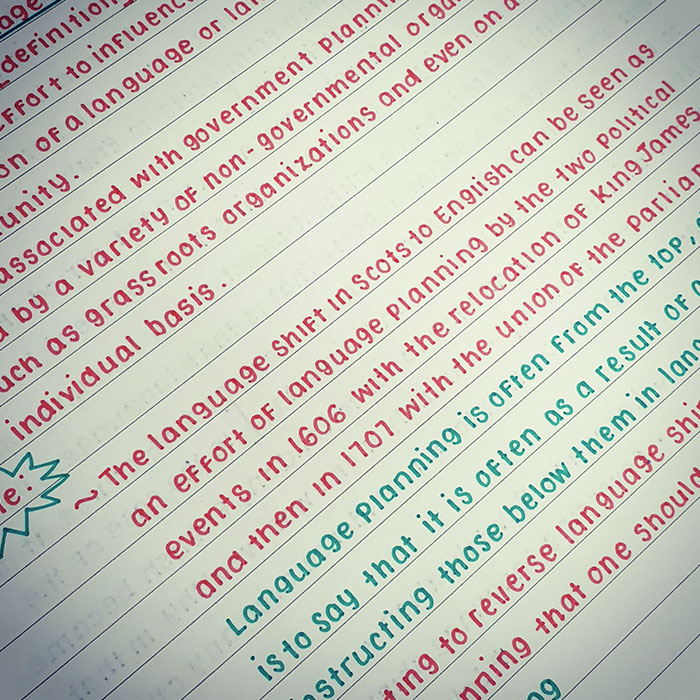 age
definition
effort to influence
on of a language or lan
unity.
associated with government planning
d by a variety of non-governmental orga
uch as grassroots organizations and even on a
individual basis.
~ The language shift in Scots to English can be seen as
an effort of language planning by the two political
events in 1606 with the relocation of King James
and then in 1707 with the union of the Parliam
Language planning is often from the top,
is to say that it is often as a result of
nstructing those below them in lang
ting to reverse language shi
nning that one should
ng
le: